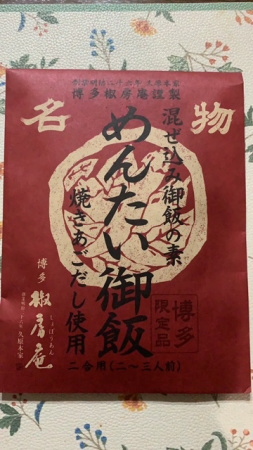 創業明治二十六年 久原本家
博多椒房庵謹製
名物
混ぜ込み御飯の素
めんたい御飯
焼きあごだし使用
博多
限定品
博多
椒房庵
しょぼうあん
久原本家
二合用(二〜三人前)